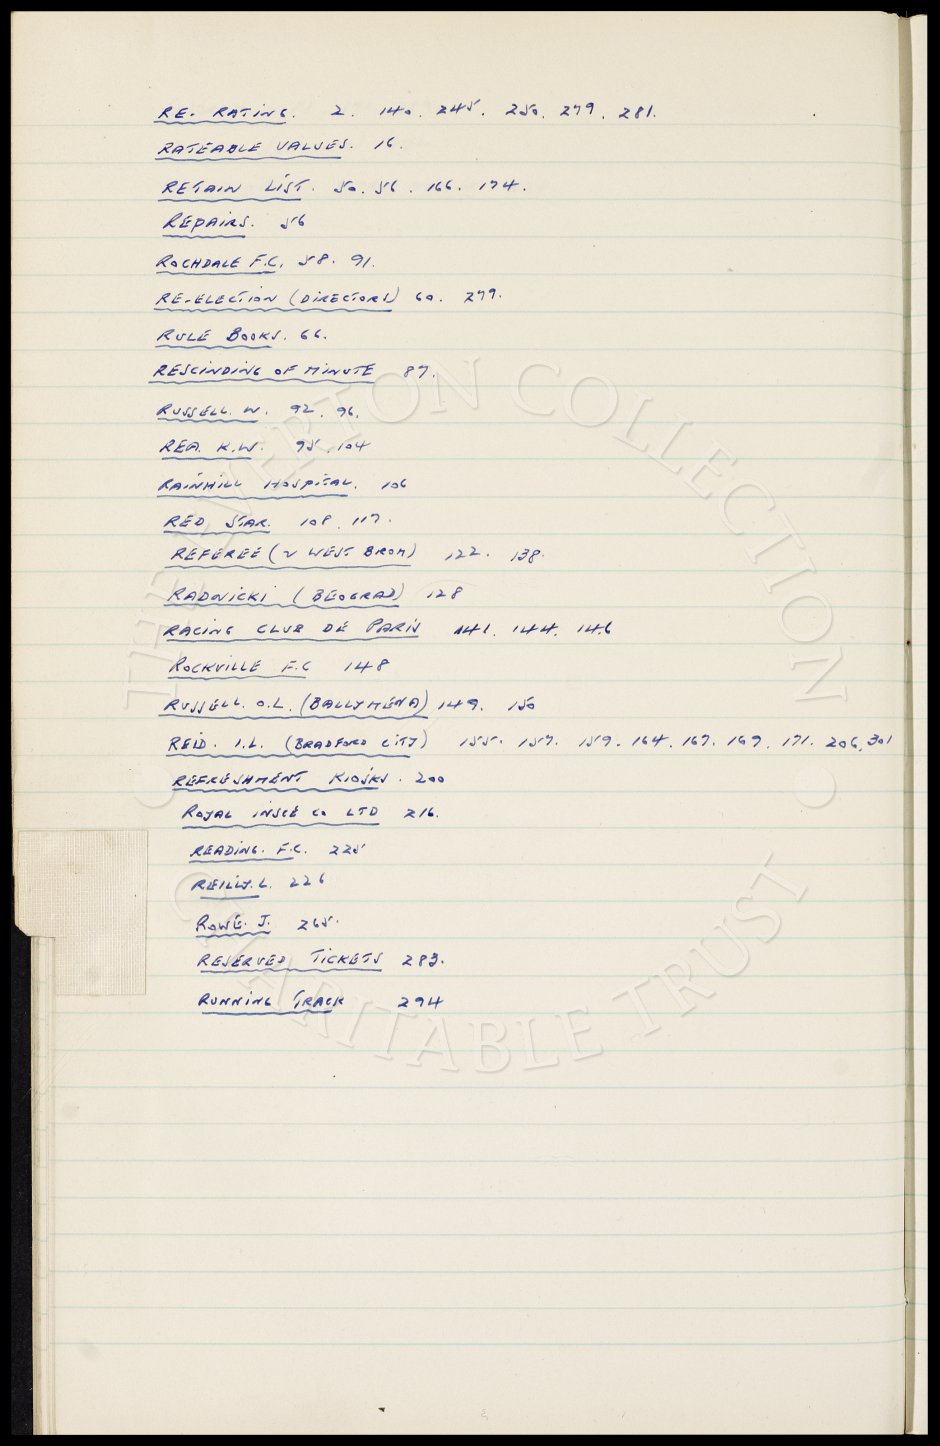 RE-RATING. 2. 140. 245. 250. 279. 281.
RATEABLE VALUES. 16.
RETAIN LIST. 50. 56. 166. 174.
REPAIRS. 56
ROCHDALE F.C. 58. 91.
RE-ELECTION (DIRECTORS) 60. 279.
RULE BOOKS. 66.
RESCINDING OF MINUTE 87.
RUSSELL. W. 92. 96.
REA. K.W. 95. 104
RAINHILL HOSPITAL. 106
RED STAR. 108. 117.
REFEREE (v WEST BROM) 122. 138.
RADNICKI (BEOGRAD) 128
RACING CLUB DE PARIS 141. 144. 146
ROCKVILLE F.C 148
RUSSELL. O.L. (BALLYMENA) 149. 150
REID. I.L. (BRADFORD CITY) 155. 157. 159. 164. 167. 169. 171. 206. 301
REFRESHMENT KIOSKS. 200
ROYAL INSCE Co LTD 216.
READING. F.C. 225
REILLY. L. 226
ROWE. J. 265.
RESERVED TICKETS 283.
RUNNING TRACK 294
THE EVERTON COLLECTION
CHARITABLE TRUST